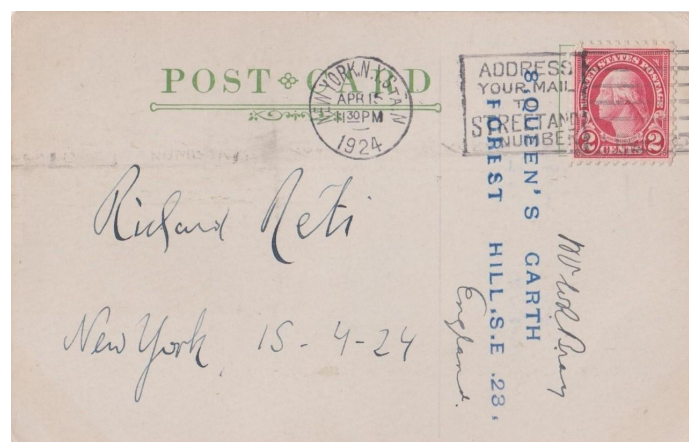 POST CARD
NEW YORK, N.Y. STA. N
APR 15
1 30 PM
1924
ADDRESS
YOUR MAIL
TO
STREET AND
NUMBER
UNITED STATES POSTAGE
2 CENTS 2
Richard Reti
New York, 15-4-24
8, QUEEN'S GARTH
FOREST HILL, S.E .23,
England.